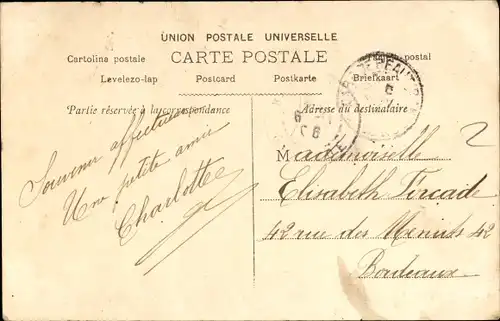 UNION POSTALE UNIVERSELLE
CARTE POSTALE
Cartolina postale
postal
Levelezo-lap Postcard Postkarte Briefkaart
Partie réservée à la correspondance
Adresse du destinataire
Souvenir affectueux
Une petite amie
Charlotte
2
Mademoiselle
Elisabeth
42 rue des Menuts 42
Bordeaux